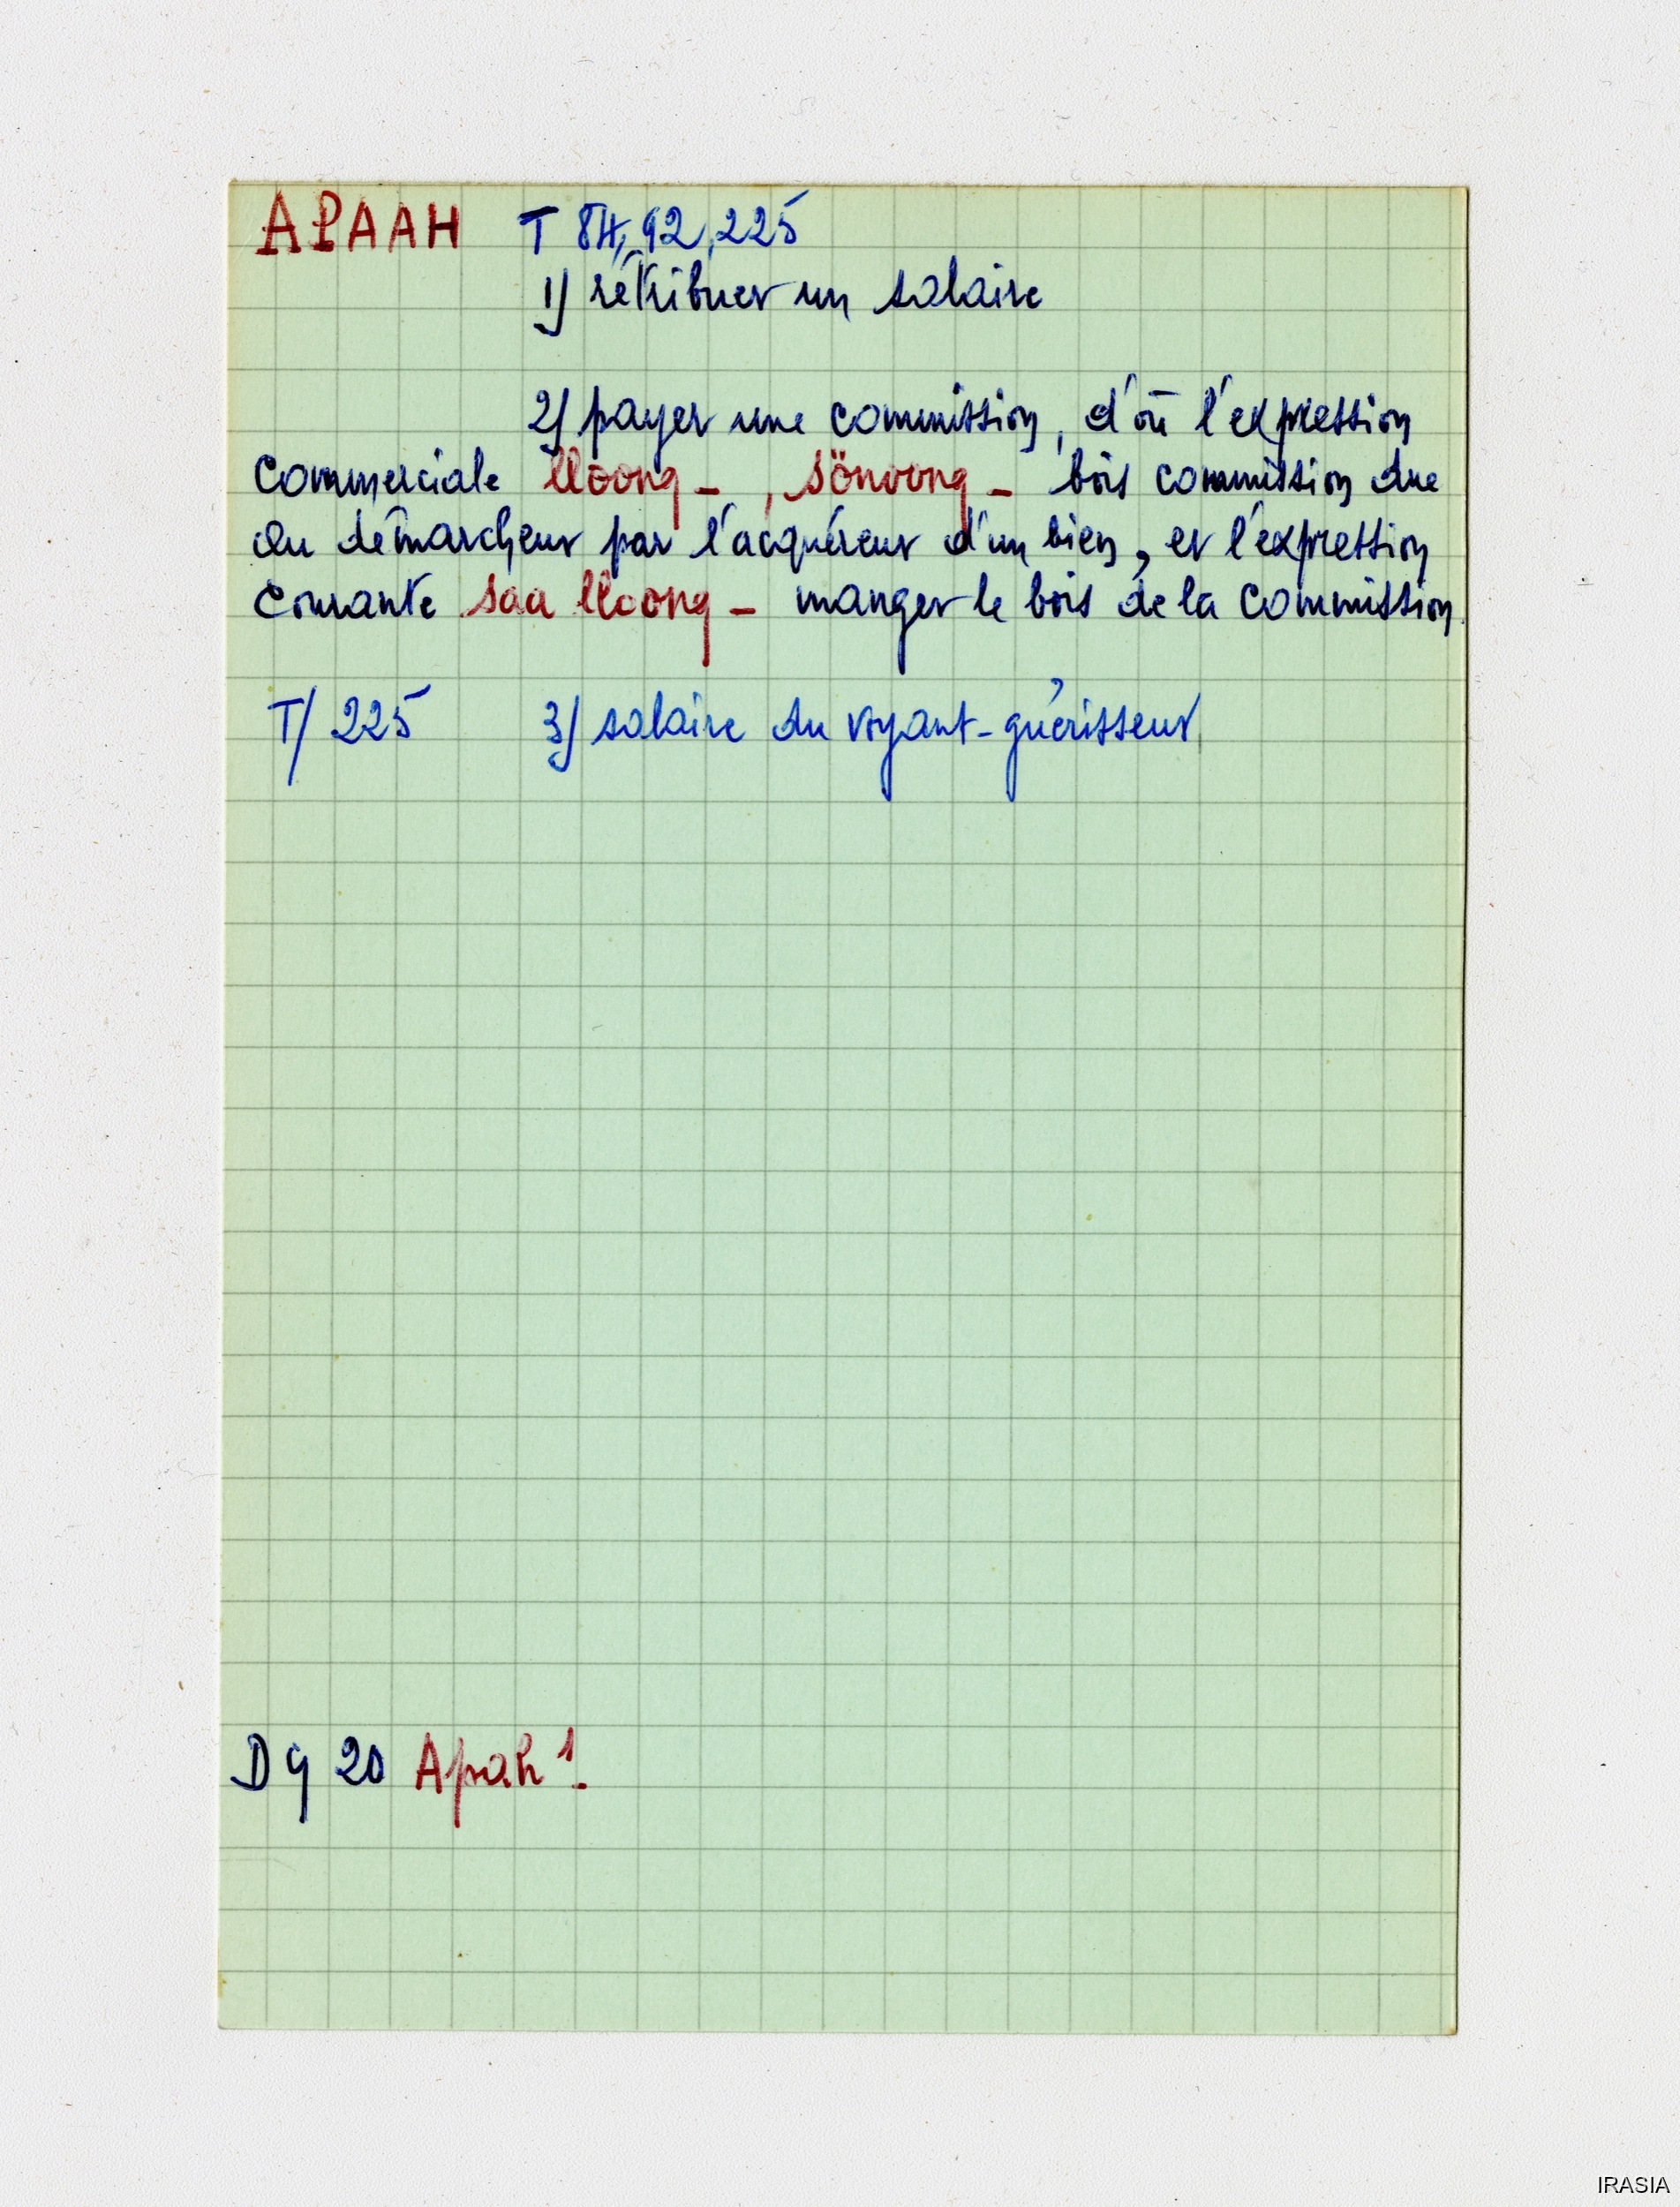 APAAH T 84, 92, 225
1) rétribuer un salaire
2) payer une commission, d'où l'expression
commerciale lloong _ , sönoong _ bois commission due
au démarcheur par l'acquéreur d'un bien, et l'expression
courante saa lloong _ manger le bois de la commission.
T/ 225 3) salaire du voyant-guérisseur
D 9 20 Apah 1.
IRASIA